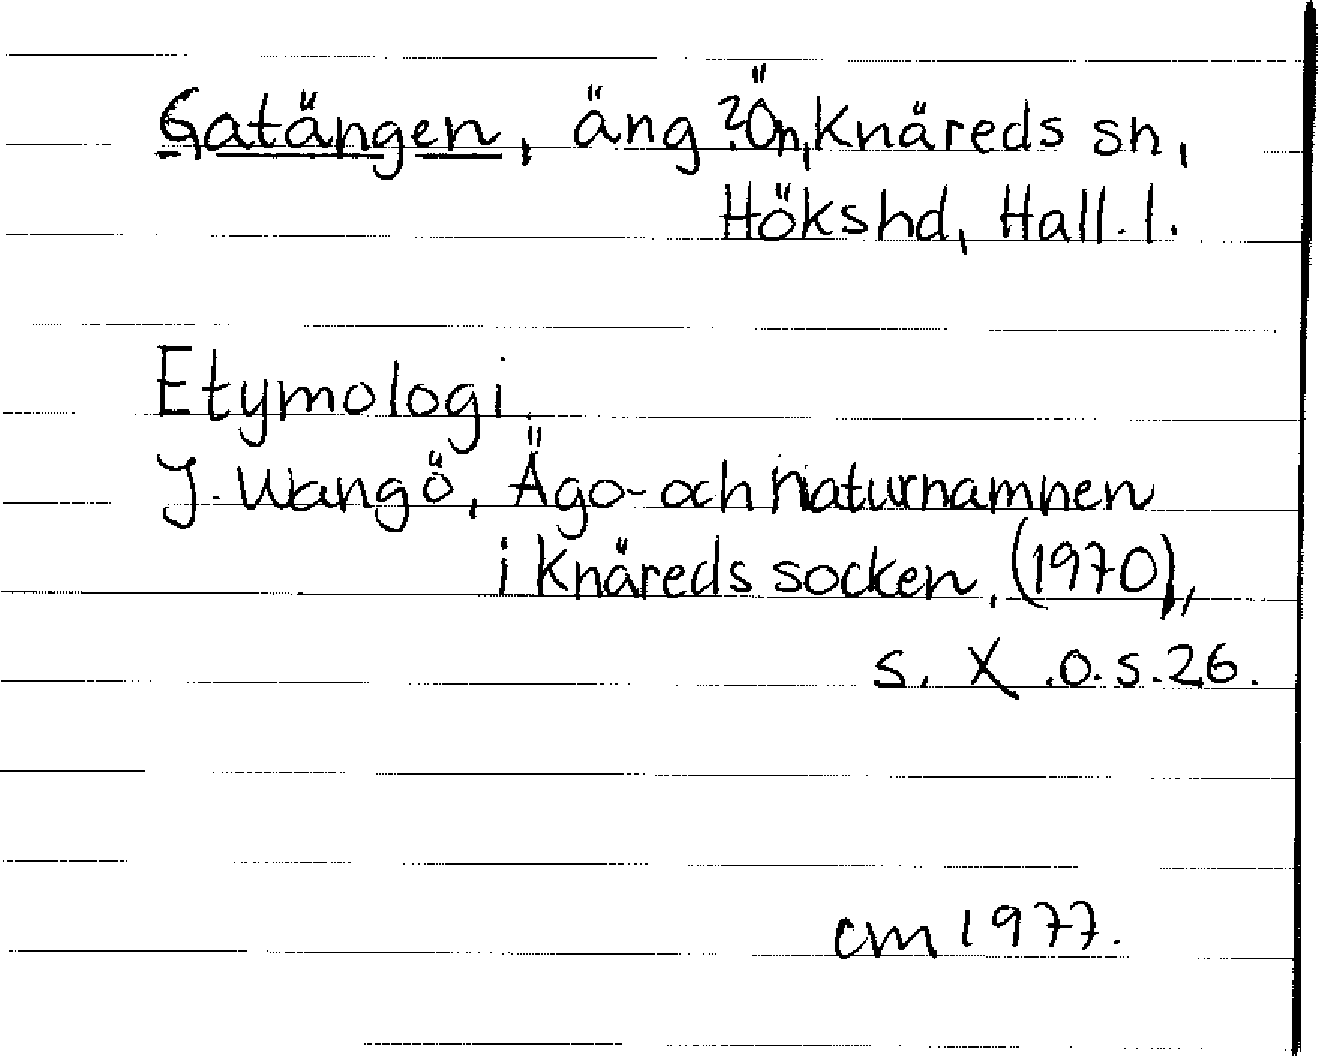 Gatängen, äng ?Ön, Knäreds sn,
Hökshd, Hall. l.
Etymologi.
J. Wangö, Ägo- och naturnamnen
i Knäreds socken, (1970),
s. X .o.s.26.
cm 1977.